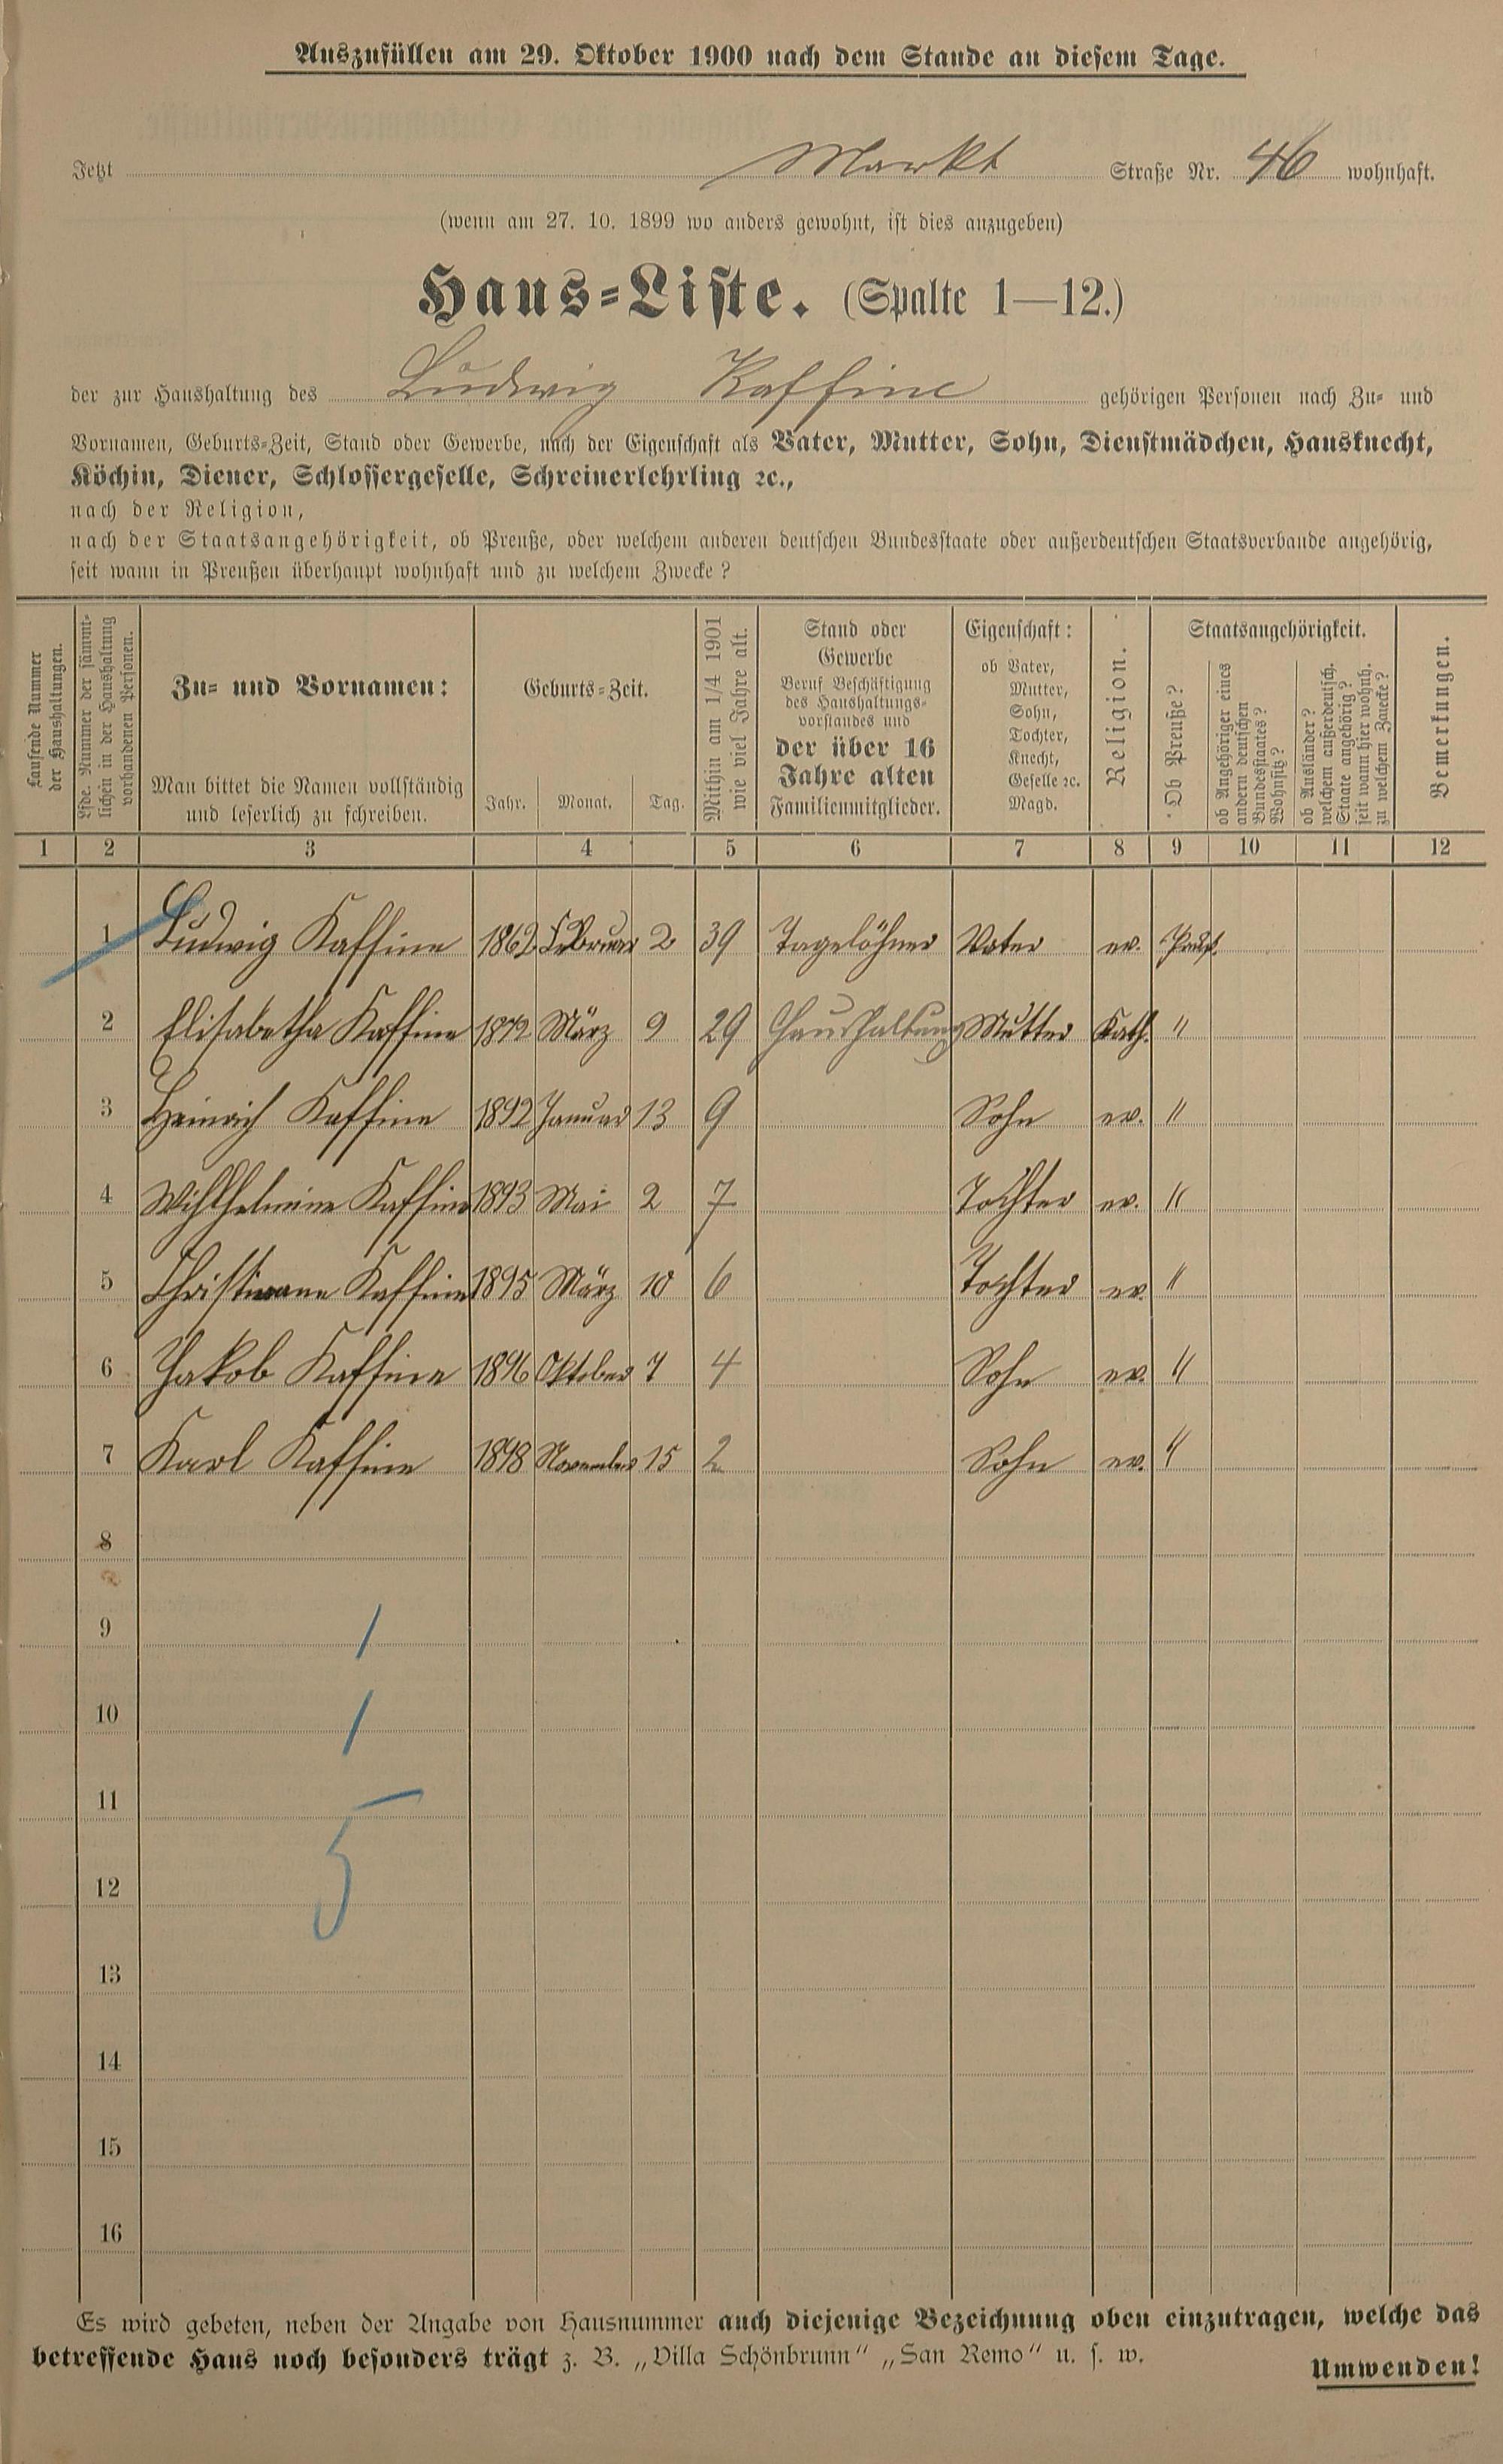 Auszufüllen am 29. Oktober 1900 nach dem Stande an diesem Tage.
Jetzt Markt Straße Nr. 46 wohnhaft.
(wenn am 27. 10. 1899 wo anders gewohnt, ist dies anzugeben)
Haus-Liste. (Spalte 1—12.)
der zur Haushaltung des Ludwig Kaffine gehörigen Personen nach Zu- und
Vornamen, Geburts-Zeit, Stand oder Gewerbe, nach der Eigenschaft als Vater, Mutter, Sohn, Dienstmädchen, Hausknecht,
Köchin, Diener, Schlossergeselle, Schreinerlehrling ꝛc.,
nach der Religion,
nach der Staatsangehörigkeit, ob Preuße, oder welchem anderen deutschen Bundesstaate oder außerdeutschen Staatsverbande angehörig,
seit wann in Preußen überhaupt wohnhaft und zu welchem Zwecke?
Laufende Nummer
der Haushaltungen.
Lfde. Nummer der sämmt-
lichen in der Haushaltung
vorhandenen Personen.
Zu- und Vornamen:
Man bittet die Namen vollständig
und leserlich zu schreiben.
Geburts-Zeit.
Jahr. Monat. Tag.
Mithin am 1/4 1901
wie viel Jahre alt.
Stand oder
Gewerbe
Beruf Beschäftigung
des Haushaltungs-
vorstandes und
der über 16
Jahre alten
Familienmitglieder.
Eigenschaft:
ob Vater,
Mutter,
Sohn,
Tochter,
Knecht,
Geselle ꝛc.
Magd.
Religion.
Staatsangehörigkeit.
Ob Preuße?
ob Angehöriger eines
andern deutschen
Bundesstaates?
Wohnsitz?
ob Ausländer?
welchem außerdeutsch.
Staate angehörig?
seit wann hier wohnh.
zu welchem Zwecke?
Bemerkungen.
1 2 3 4 5 6 7 8 9 10 11 12
1 Ludwig Kaffine 1862 Februar 2 39 Tagelöhner Vater ev. Preuß.
2 Elisabetha Kaffine 1872 März 9 29 Haushaltung Mutter Kath. "
3 Heinrich Kaffine 1892 Januar 13 9 Sohn ev. "
4 Wihlhelmine Kaffine 1893 Mai 2 7 Tochter ev. "
5 Kaffine 1895 März 10 6 Tochter ev. "
6 Jakob Kaffine 1896 Oktober 7 4 Sohn ev. "
7 Karl Kaffine 1898 November 15 2 Sohn ev. "
8
9 1
10 1
11
12 5
13
14
15
16
Es wird gebeten, neben der Angabe von Hausnummer auch diejenige Bezeichnung oben einzutragen, welche das
betreffende Haus noch besonders trägt z. B. „Villa Schönbrunn“ „San Remo“ u. s. w.
Umwenden!